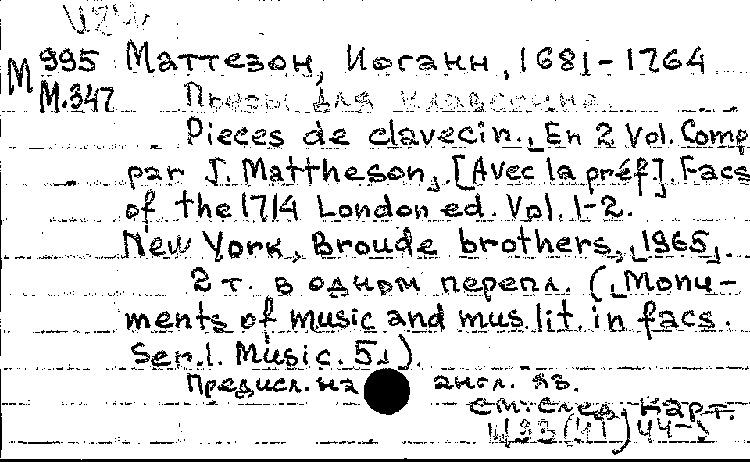 М 995 Маттезон, Иоганн, 1681-1764
М.347 Пьесы для клавесина.
Pièces de clavecin. En 2 Vol. Comp
par J. Mattheson. [Avec la préf]. Facs
of the 1714 London ed. Vol. 1-2.
New York, Broude brothers, 1965.
2 т. в одном перепл. (Monu-
ments of music and mus. lit. in facs.
Ser. 1. Music. 5).
Предисл. на англ. яз.
См. след. карт.